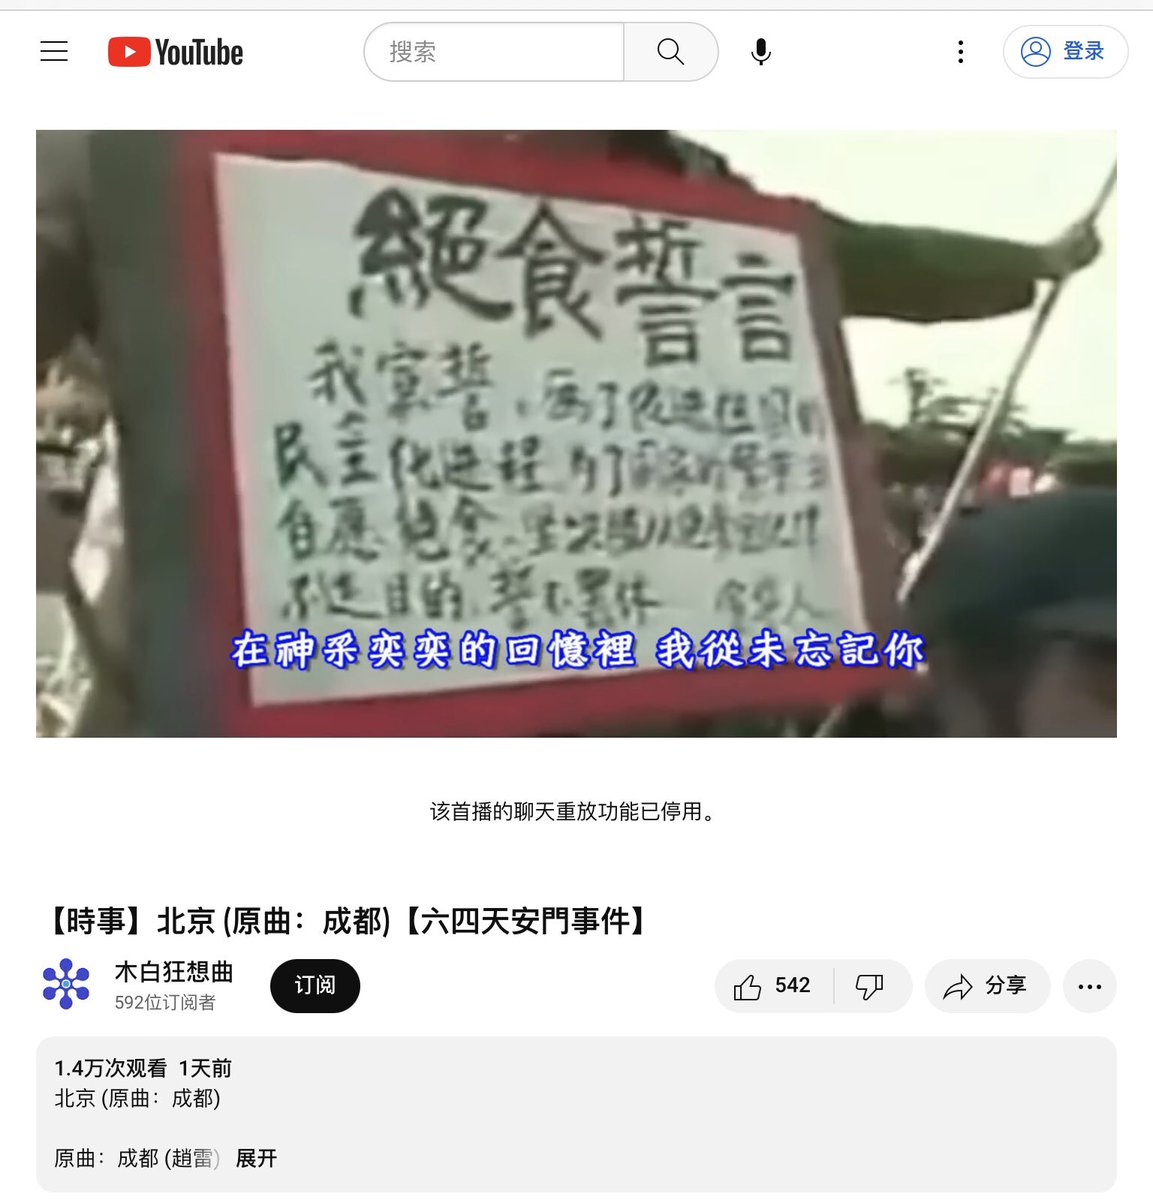 YouTube
搜索
登录
絕食誓言
我宣誓,為了促進祖國的
民主化進程,為了國家的繁榮,
自愿絕食,堅决
不达目的,誓不罢休
在神采奕奕的回憶裡 我從未忘記你
该首播的聊天重放功能已停用。
【時事】北京 (原曲：成都)【六四天安門事件】
木白狂想曲
592位订阅者
订阅
542
分享
1.4万次观看 1天前
北京 (原曲：成都)
原曲：成都 (趙雷) 展开